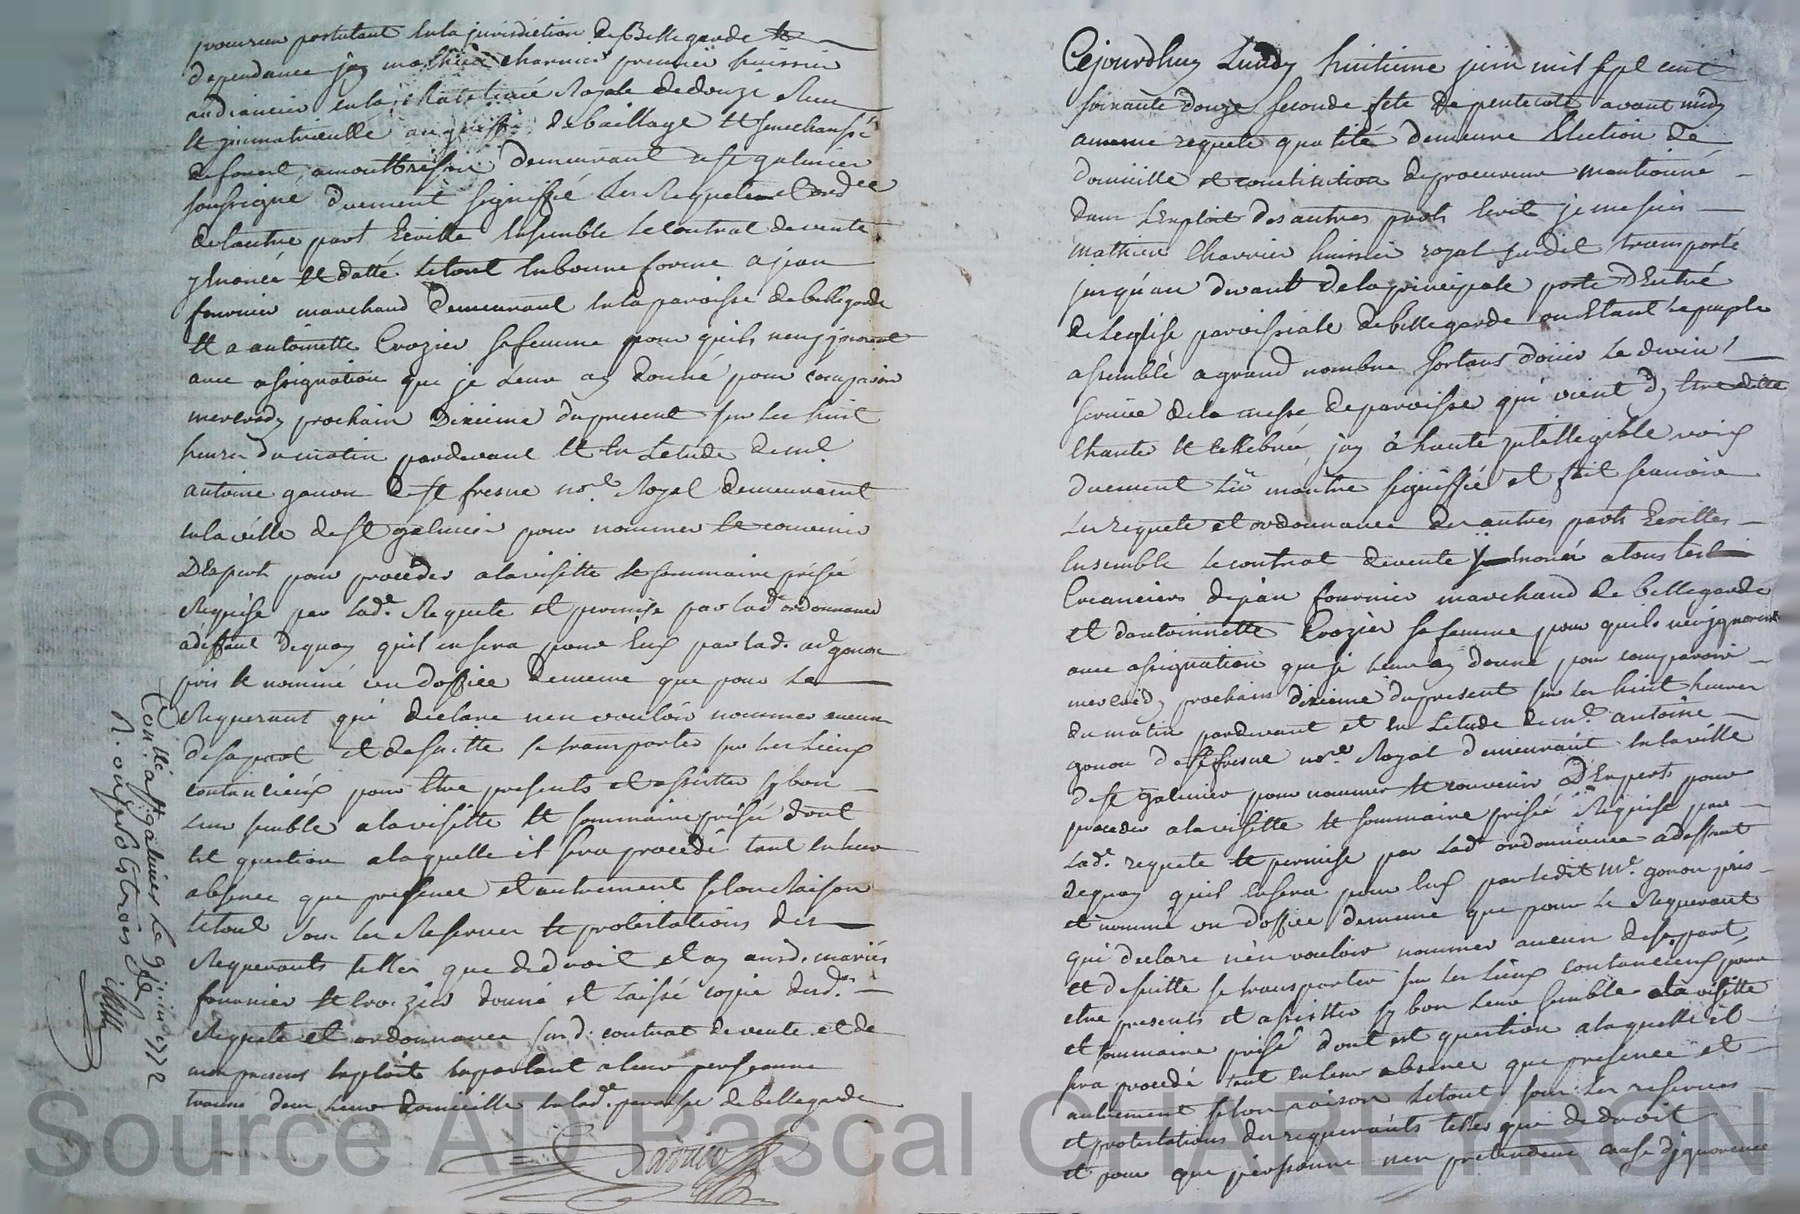 postulant en la jurisdiction de Bellegarde et
dependance jay mathieu charvier premier huissier
audiancier en la chatelenie Royale de donzi
et jmmatriculle au greffe du baillage et senechaussé
de forest, a montbrison demeurant a st galmier
soussigne duement signiffié les Requete et ordce
de lautre part Ecritte Ensemble le contrat de vente
y Enoncé et datté. le tout en bonne forme a jean
fournier marchand demeurant en la paroisse de bellegarde
et a antoinette Crozier sa femme pour quils nen jgnorent
avec assignation que je leur ay donné pour comparoir
mercredy prochain Dixieme du present sur les huit
heures du matin pardevant et en Letude de me
antoine gonon de st fresne nore Royal demeurant
en la ville de st galmier pour nommer et convenir
DExperts pour proceder a la visitte et sommaire prisée
Requise par lade. Requete et permise par lade ordonnance
a deffaut de quoy quil en sera pour Eux par led. me gonon
pris et nommé un doffice de meme que pour Le
Requerant qui declare nen vouloir nommer aucun
de sa part et de suitte se transporter sur les Lieux
contantieux pour Etre presents et assister sy bon
Leur semble a la visitte et sommaire prisée dont
est question a laquelle il sera procedé tant en leur
absence que presence et autrement selon Raison
le tout sous les Reserves et protestations des
Requerants telles que de droit et ay auxd. mariés
fournier et Crozier donné et Laissé copie desd.
Requete et ordonnance susd. contrat de vente et de
mon present Exploit En parlant a leur personne
trouvé dans Leur domicille en lade. paroisse de bellegarde
Charvier
Conllé a st galmier le 9 juin 1772
R. onze sols trois
Cejourdhuy Lundy huitieme juin mil sept cent
soixante douze seconde fete de pentecote avant midy
a meme requete qualité demeure Election de
domicille et constitution de procureur mentionné
dans LExploit des autres parts Ecrit je me suis
mathieu Charvier huissier royal susdit transporté
jusqúau devant de la principale porte DEntré
de Leglise paroissiale de bellegarde ou Etant le peuple
assemblé a grand nombre sortans doüir Le divin
service de la messe de paroisse qui vient dy Etre ditte
chanté et cellebrée, jay à haute jntellegible voix
duement Lü montré signiffié et fait scavoir
Les requete et ordonnance des autres parts Ecrittes
Ensemble le contrat de vente y Enoncé a tous les
Creanciers de jean fournier marchand de bellegarde
et dantoinnette Crozier sa femme pour quils nen jgnorent
avec assignation que je leur ay donné pour comparoir
mercredy prochain dixieme du present sur les huit heures
du matin pardevant et en Letude de me. antoine
gonon de st fresne nore. Royal demeurant en la ville
de st galmier pour nommer et convenir DExperts pour
proceder a la visitte et sommaire prisée Requise par
Lade. requete et permise par Lade ordonnance a deffaut
de quoy quil En sera pour Eux par ledit me. gonon pris
et nommé un doffice de meme que pour Le Requerant
qui declare nen vouloir nommer aucun de sa part
et de suitte se transporter sur les Lieux contantieux pour
etre presents et assister sy bon Leur semble a la visitte
et sommaire prisée dont est question a laquelle il
sera procedé tant en Leur absence que presence et
autrement selon raison Le tout sous les reserves
et protestations des requerants telles que de droit
et pour que personne nen pretendent cause djgnorence
Source AD Pascal CHARLYRON